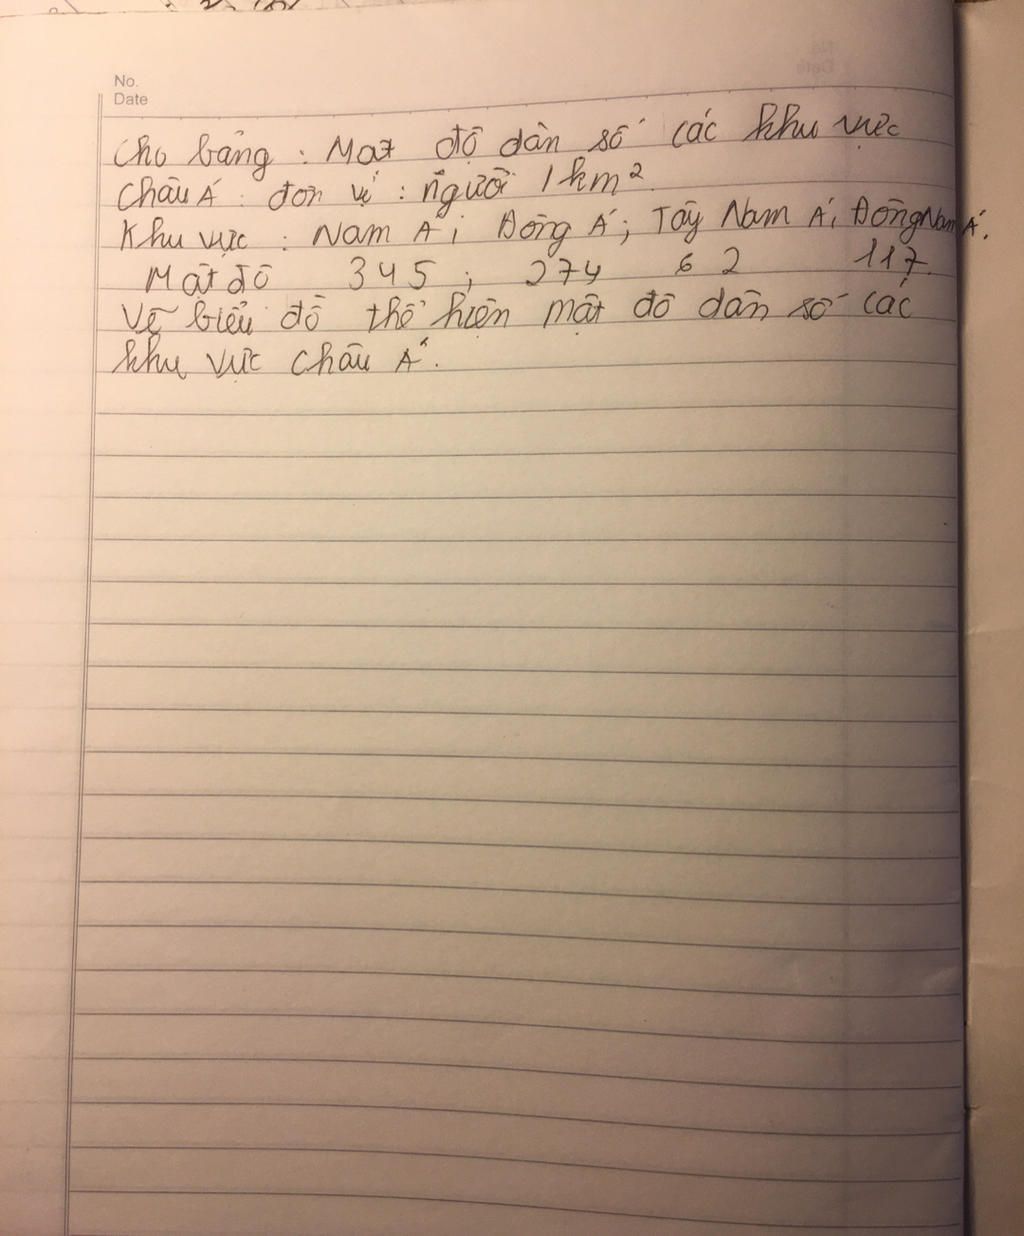 No.
Date
Cho bảng : Mật độ dân số các khu vực
Châu Á : đơn vị : người / km²
Khu vực : Nam Á ; Đông Á ; Tây Nam Á ; Đông Nam Á.
Mật độ 345 ; 274 62 117.
Vẽ biểu đồ thể hiện mật độ dân số các
khu vực châu Á.